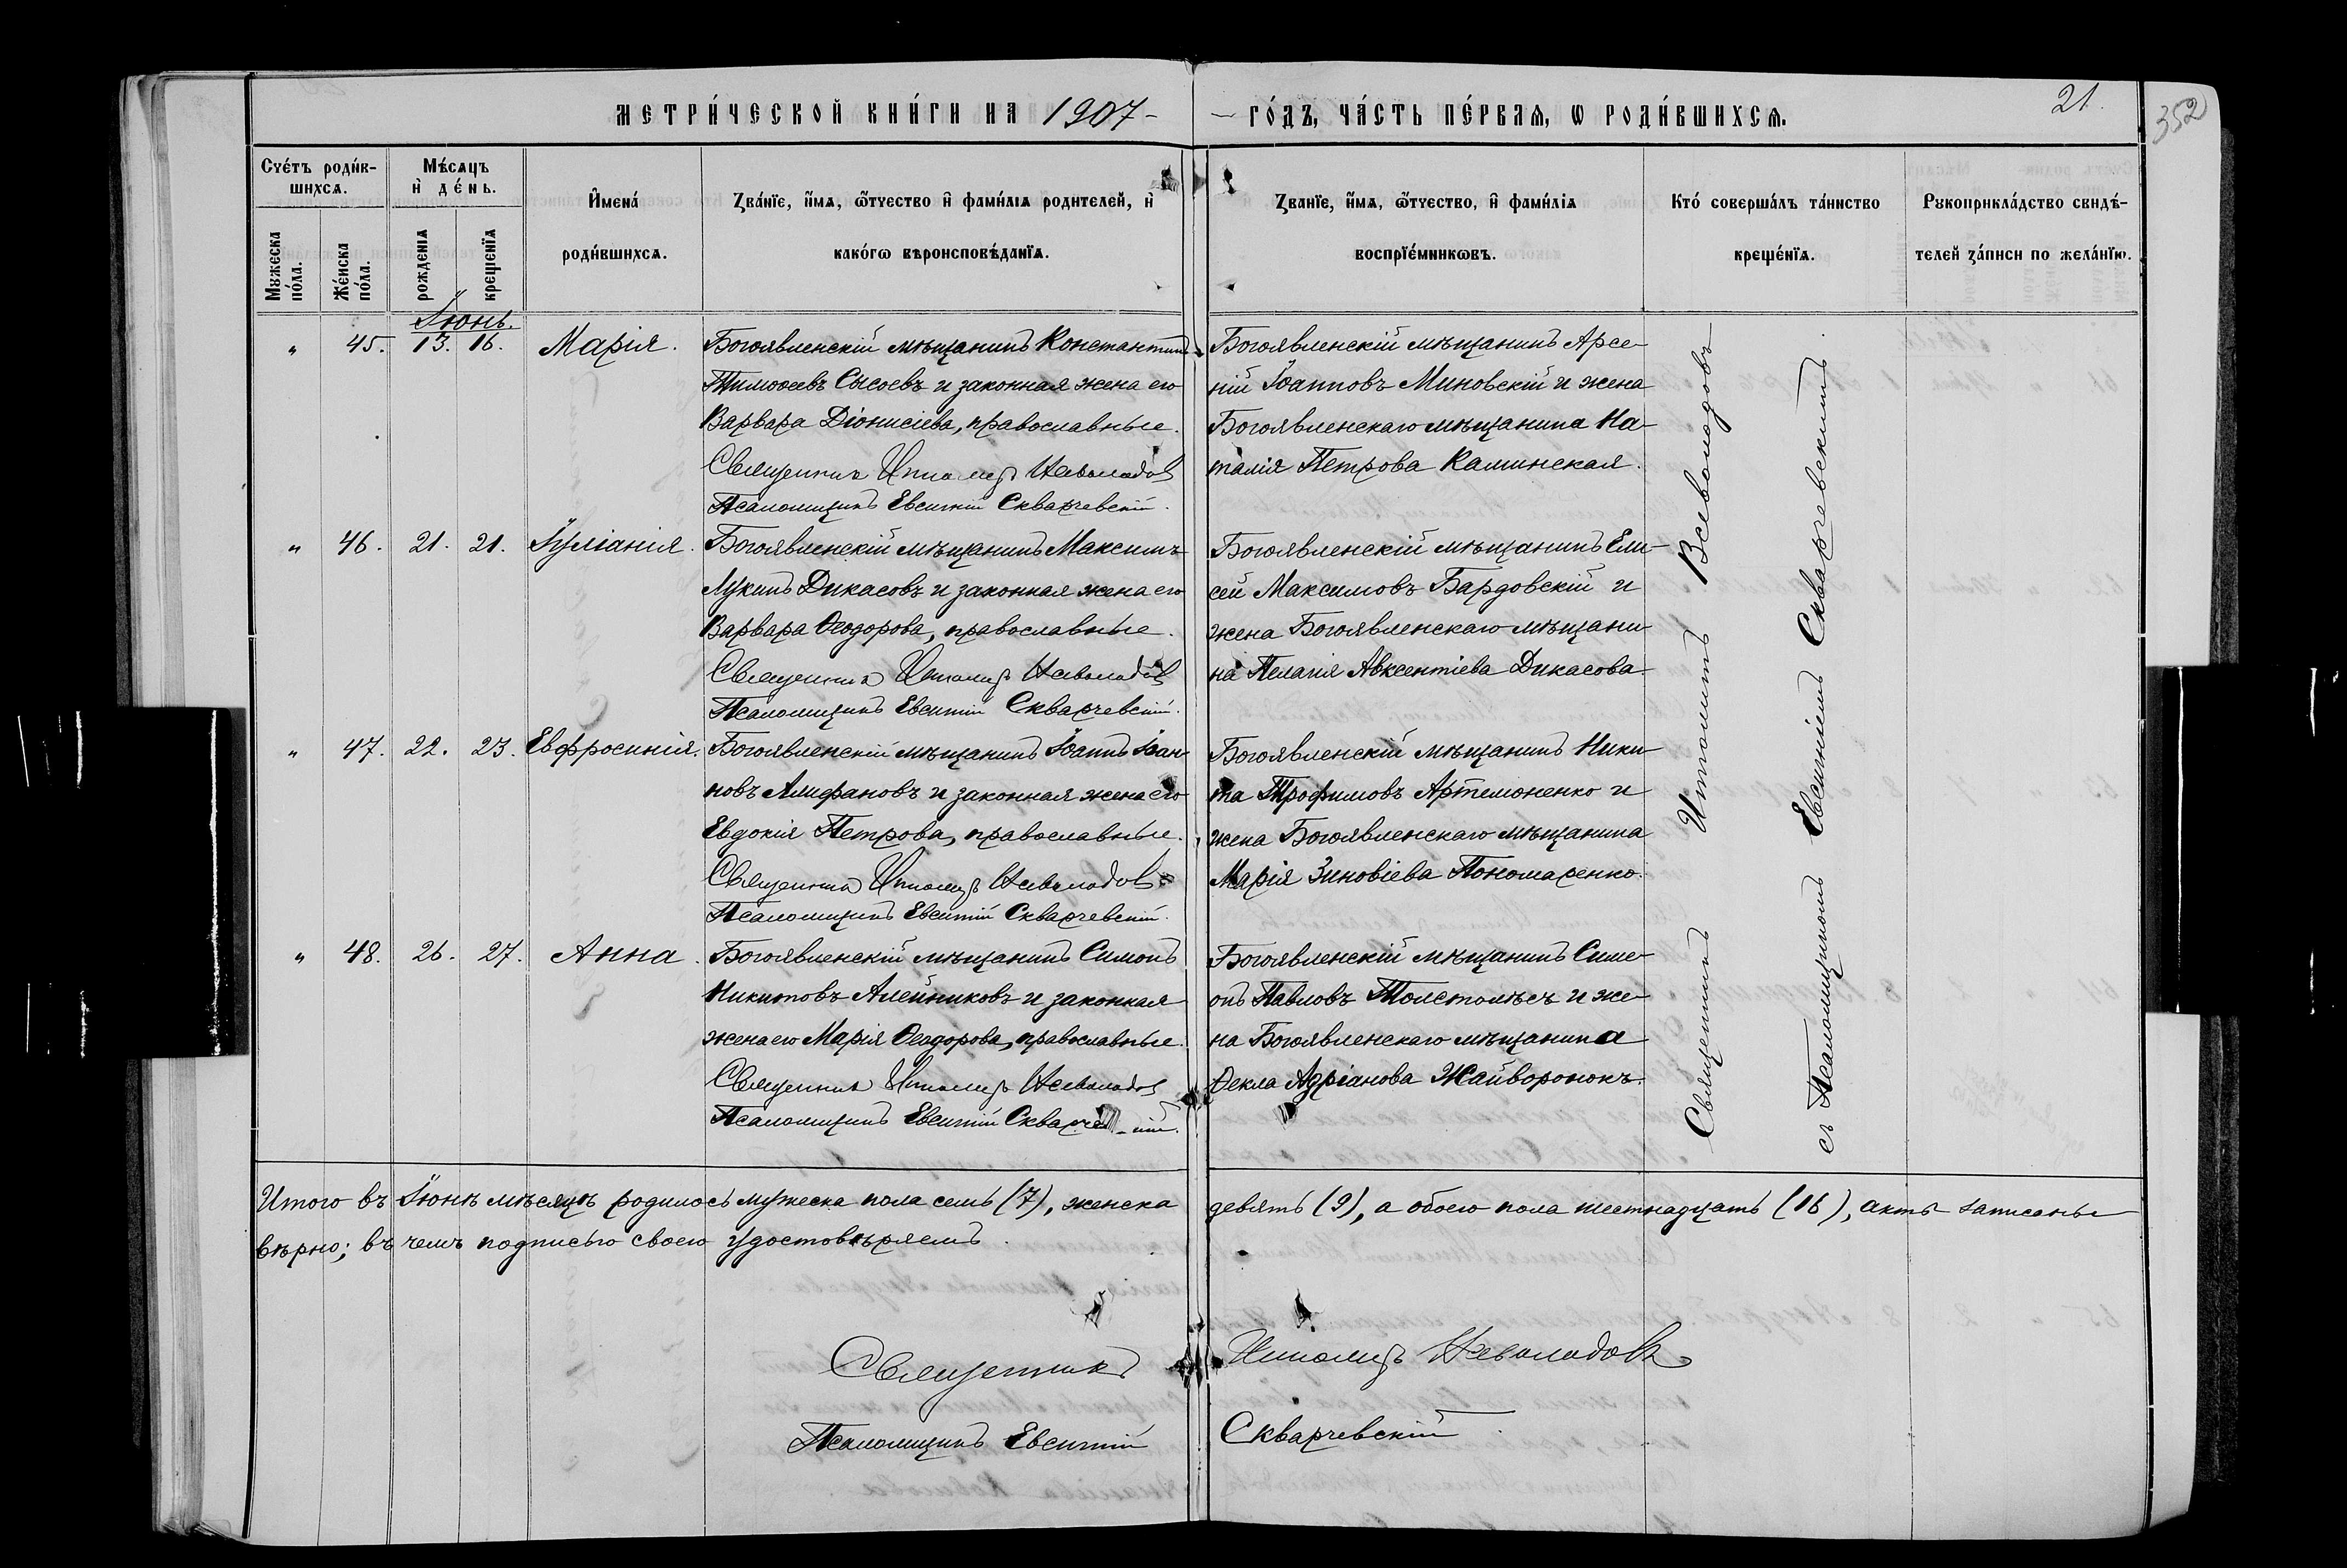 МЕТРИ́ЧЕСКОЙ КНИ́ГИ НА 1907 - - ГО́ДЪ, ЧА́СТЬ ПЕ́РВАЯ, Ѡ РОДИ́ВШИХСЯ.
21.
352
Сче́тъ роди́в-
шихся.
Мѣ́сяцъ
и де́нь.
Мужеска
по́ла.
Же́нска
по́ла.
рожденія
крещенїя
Имена́
роди́вшихся.
Зва́нїе, и́мя, ѻ́тчество и фами́лія родителей, и
како́гѡ вѣроисповѣ́данїя.
Званїе, и́мя, ѻ́тчество, и фами́лїя
воспрїе́мникѡвъ.
Кто́ соверша́лъ та́инство
креще́нїя.
Рукоприкла́дство свидѣ́-
телей за́писи по жела́нїю.
Іюнь.
" 45. 13. 16. Марія.
Богоявленскій мѣщанинъ Константинъ
Тимоѳеевъ Сысоевъ и законная жена его
Варвара Діонисіева, православные.
Священникъ Ипполитъ Всеволодовъ
Псаломщикъ Евсигній Скварчевскій.
Богоявленскій мѣщанинъ Арсе-
ній Іоанновъ Миновскій и жена
Богоявленскаго мѣщанина На-
талія Петрова Каминская.
" 46. 21. 21. Іуліанія.
Богоявленскій мѣщанинъ Максимъ
Лукинъ Дикасовъ и законная жена его
Варвара Ѳеодорова, православные.
Священникъ Ипполитъ Всеволодовъ
Псаломщикъ Евсигній Скварчевскій.
Богоявленскій мѣщанинъ Ели-
сей Максимовъ Бардовскій и
жена Богоявленскаго мѣщани-
на Пелагія Авксентіева Дикасова.
" 47. 22. 23. Евфросинія.
Богоявленскій мѣщанинъ Іоаннъ Іоан-
новъ Алифановъ и законная жена его
Евдокія Петрова, православные.
Священникъ Ипполитъ Всеволодовъ
Псаломщикъ Евсигній Скварчевскій.
Богоявленскій мѣщанинъ Ники-
та Трофимовъ Артемоненко и
жена Богоявленскаго мѣщанина
Марія Зиновіева Пономаренко.
" 48. 26. 27. Анна.
Богоявленскій мѣщанинъ Симонъ
Никитовъ Алейниковъ и законная
жена его Марія Ѳеодорова, православные.
Священникъ Ипполитъ Всеволодовъ
Псаломщикъ Евсигній
Богоявленскій мѣщанинъ Симе-
онъ Павловъ Толстолѣсъ и же-
на Богоявленскаго мѣщанина
Ѳекла Адріанова Жайворонокъ.
Священникъ Ипполитъ Всеволодовъ
съ Псаломщикомъ Евсигніемъ Скварчевскимъ.
Итого въ Іюнѣ мѣсяцѣ родилось мужеска пола семь (7), женска девять (9), а обоего пола шестнадцать (16), акты записаны
вѣрно; въ чемъ подписью своею удостовѣряемъ.
Священникъ Ипполитъ Всеволодовъ
Псаломщикъ Евсигній Скварчевскій.